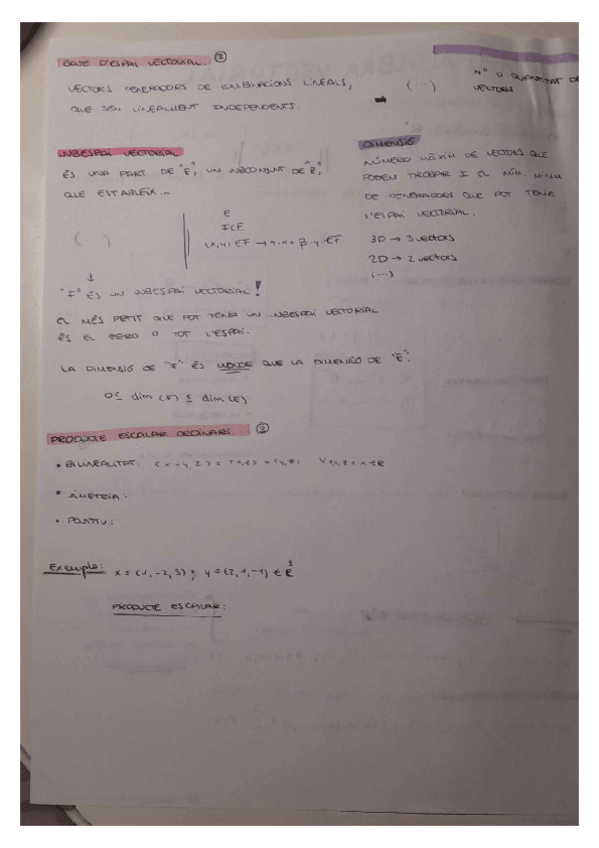 BASE D'ESPAI VECTORIAL. ②
VECTORS GENERADORS DE COMBINACIONS LINEALS,
QUE SÓN LINEALMENT INDEPENDENTS.
➡ (...)
Nº O QUANTITAT DE
VECTORS
SUBESPAI VECTORIAL
ÉS UNA PART DE "E", UN SUBCONJUNT DE "E",
QUE ESTABLEIX...
(...)
(x,y) ∈ F →
↓
"F" ÉS UN SUBESPAI VECTORIAL!
EL MÉS PETIT QUE POT TENIR UN SUBESPAI VECTORIAL
ÉS EL ZERO O TOT L'ESPAI.
LA DIMENSIÓ DE "F" ÉS QUE LA DIMENSIÓ DE "E".
0 ≤ dim (F) ≤ dim (E)
DIMENSIÓ
NÚMERO MÀXIM DE VECTORS QUE
PODEM TROBAR I EL MÍN.
DE GENERADORS QUE POT TENIR
L'ESPAI VECTORIAL.
3D → 3 vectors
2D → 2 vectors
(...)
PRODUCTE ESCALAR ORDINARI ③
• BILINEALITAT:
• SIMETRIA:
• POSITIU:
Exemple: x = (1, -2, 3) ; y = (2, 1, -1) ∈ R³
PRODUCTE ESCALAR: